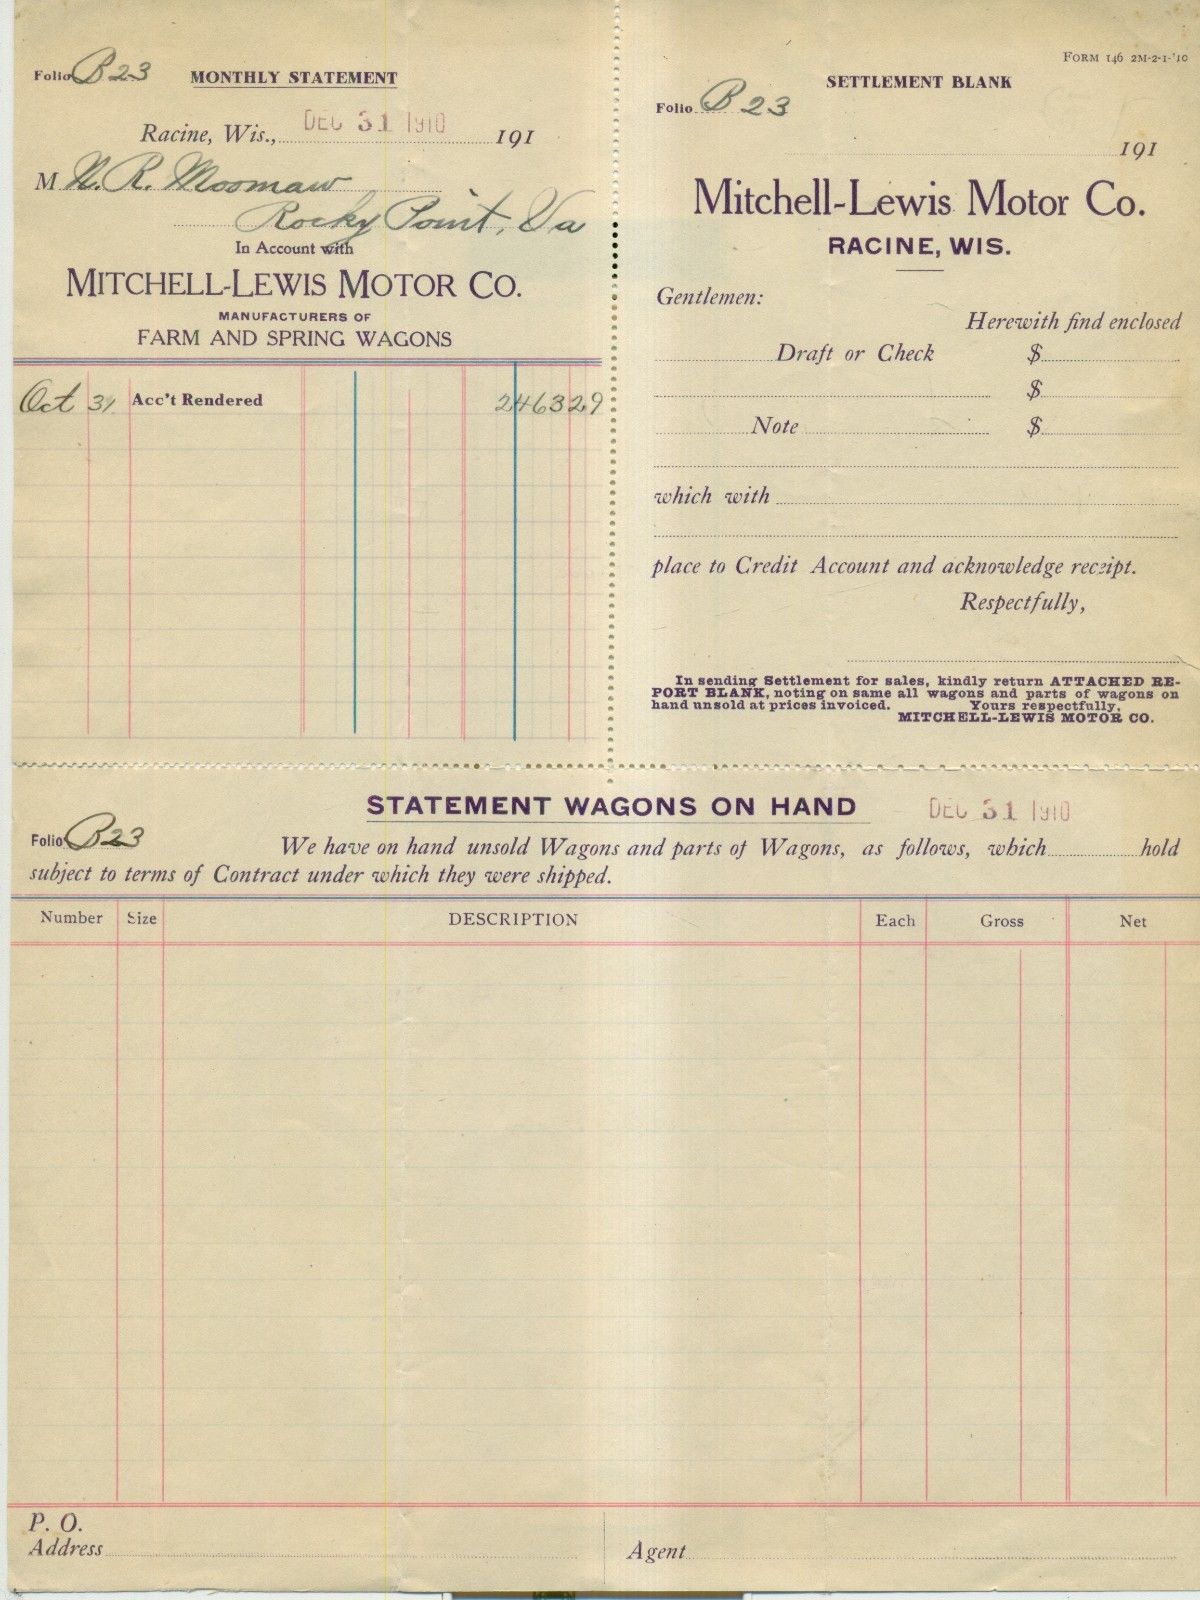 Folio B 23
MONTHLY STATEMENT
Racine, Wis., DEC 31 1910 191
M N. R. Moomaw
Rocky Point, Va
In Account with
MITCHELL-LEWIS MOTOR CO.
MANUFACTURERS OF
FARM AND SPRING WAGONS
Oct 31 Acc't Rendered 2463 29
FORM 146 2M-2-1-'10
SETTLEMENT BLANK
Folio B 23
191
Mitchell-Lewis Motor Co.
RACINE, WIS.
Gentlemen:
Herewith find enclosed
Draft or Check $
$
Note $
which with
place to Credit Account and acknowledge receipt.
Respectfully,
In sending Settlement for sales, kindly return ATTACHED RE-
PORT BLANK, noting on same all wagons and parts of wagons on
hand unsold at prices invoiced. Yours respectfully,
MITCHELL-LEWIS MOTOR CO.
STATEMENT WAGONS ON HAND DEC 31 1910
Folio B23
We have on hand unsold Wagons and parts of Wagons, as follows, which hold
subject to terms of Contract under which they were shipped.
Number Size DESCRIPTION Each Gross Net
P. O.
Address
Agent